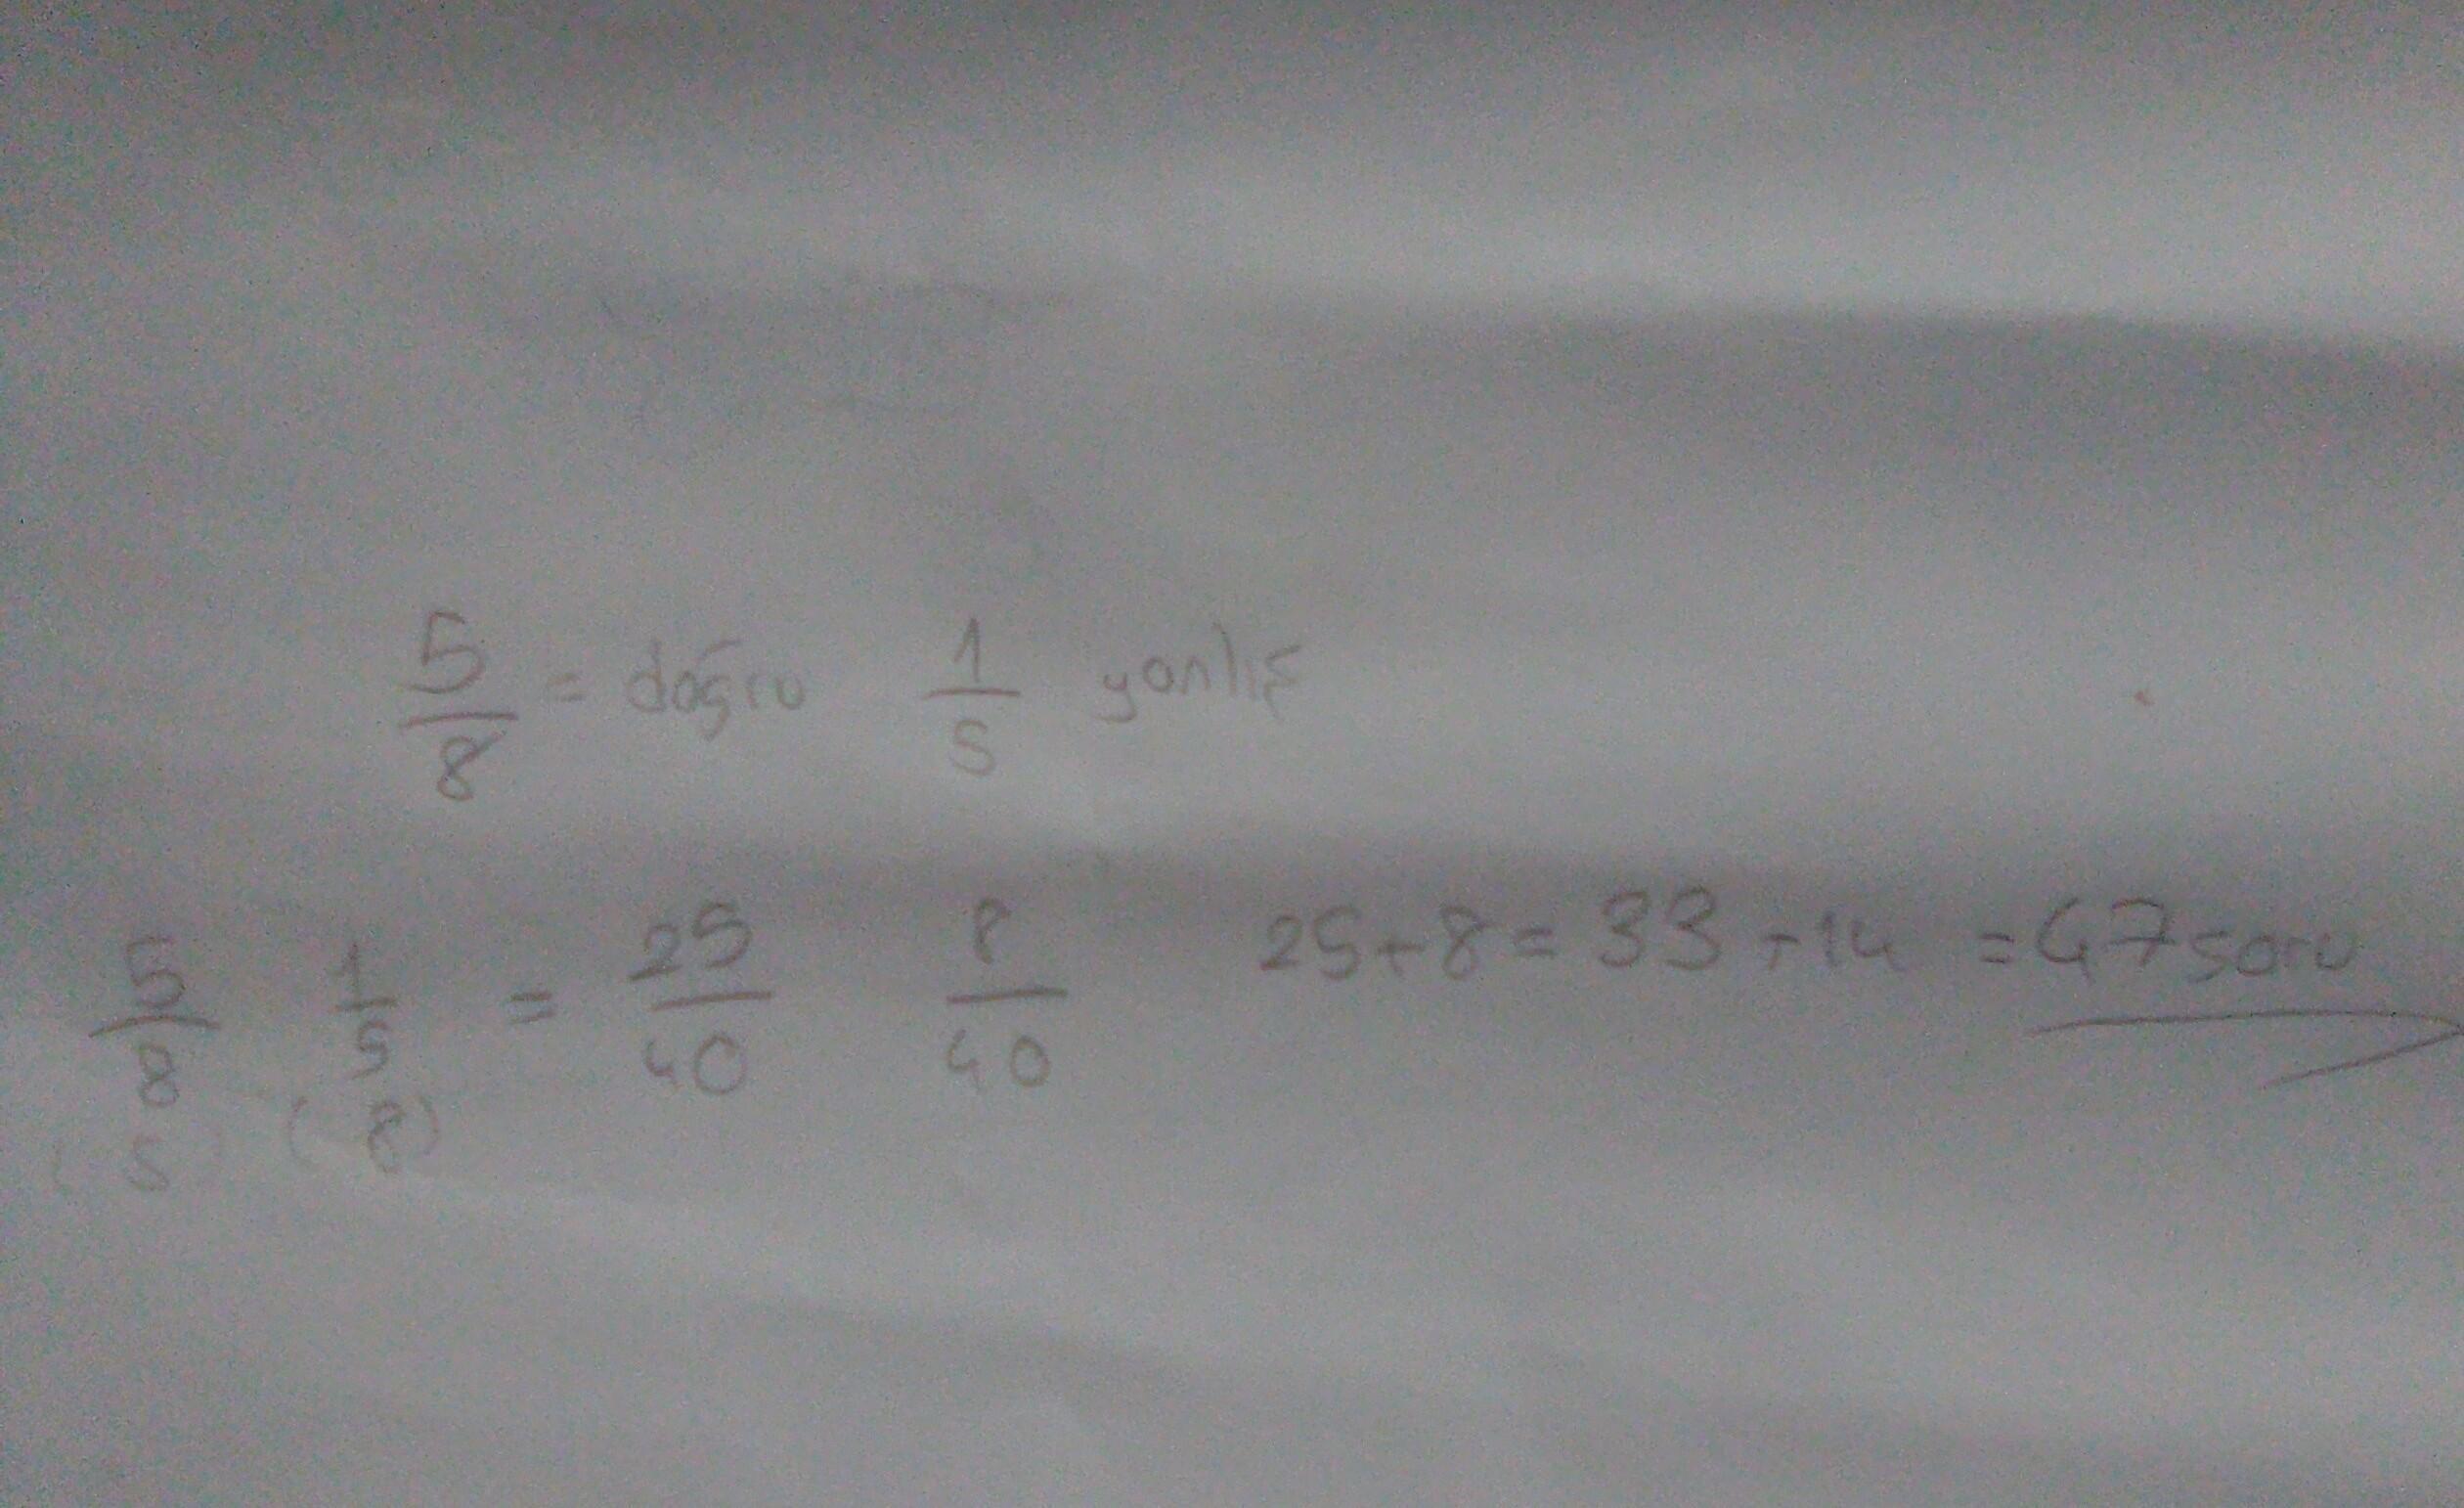 5/8 = doğru 1/5 yanlış
5/8 1/5 = 25/40 8/40 25+8=33+14=47soru
(5) (8)